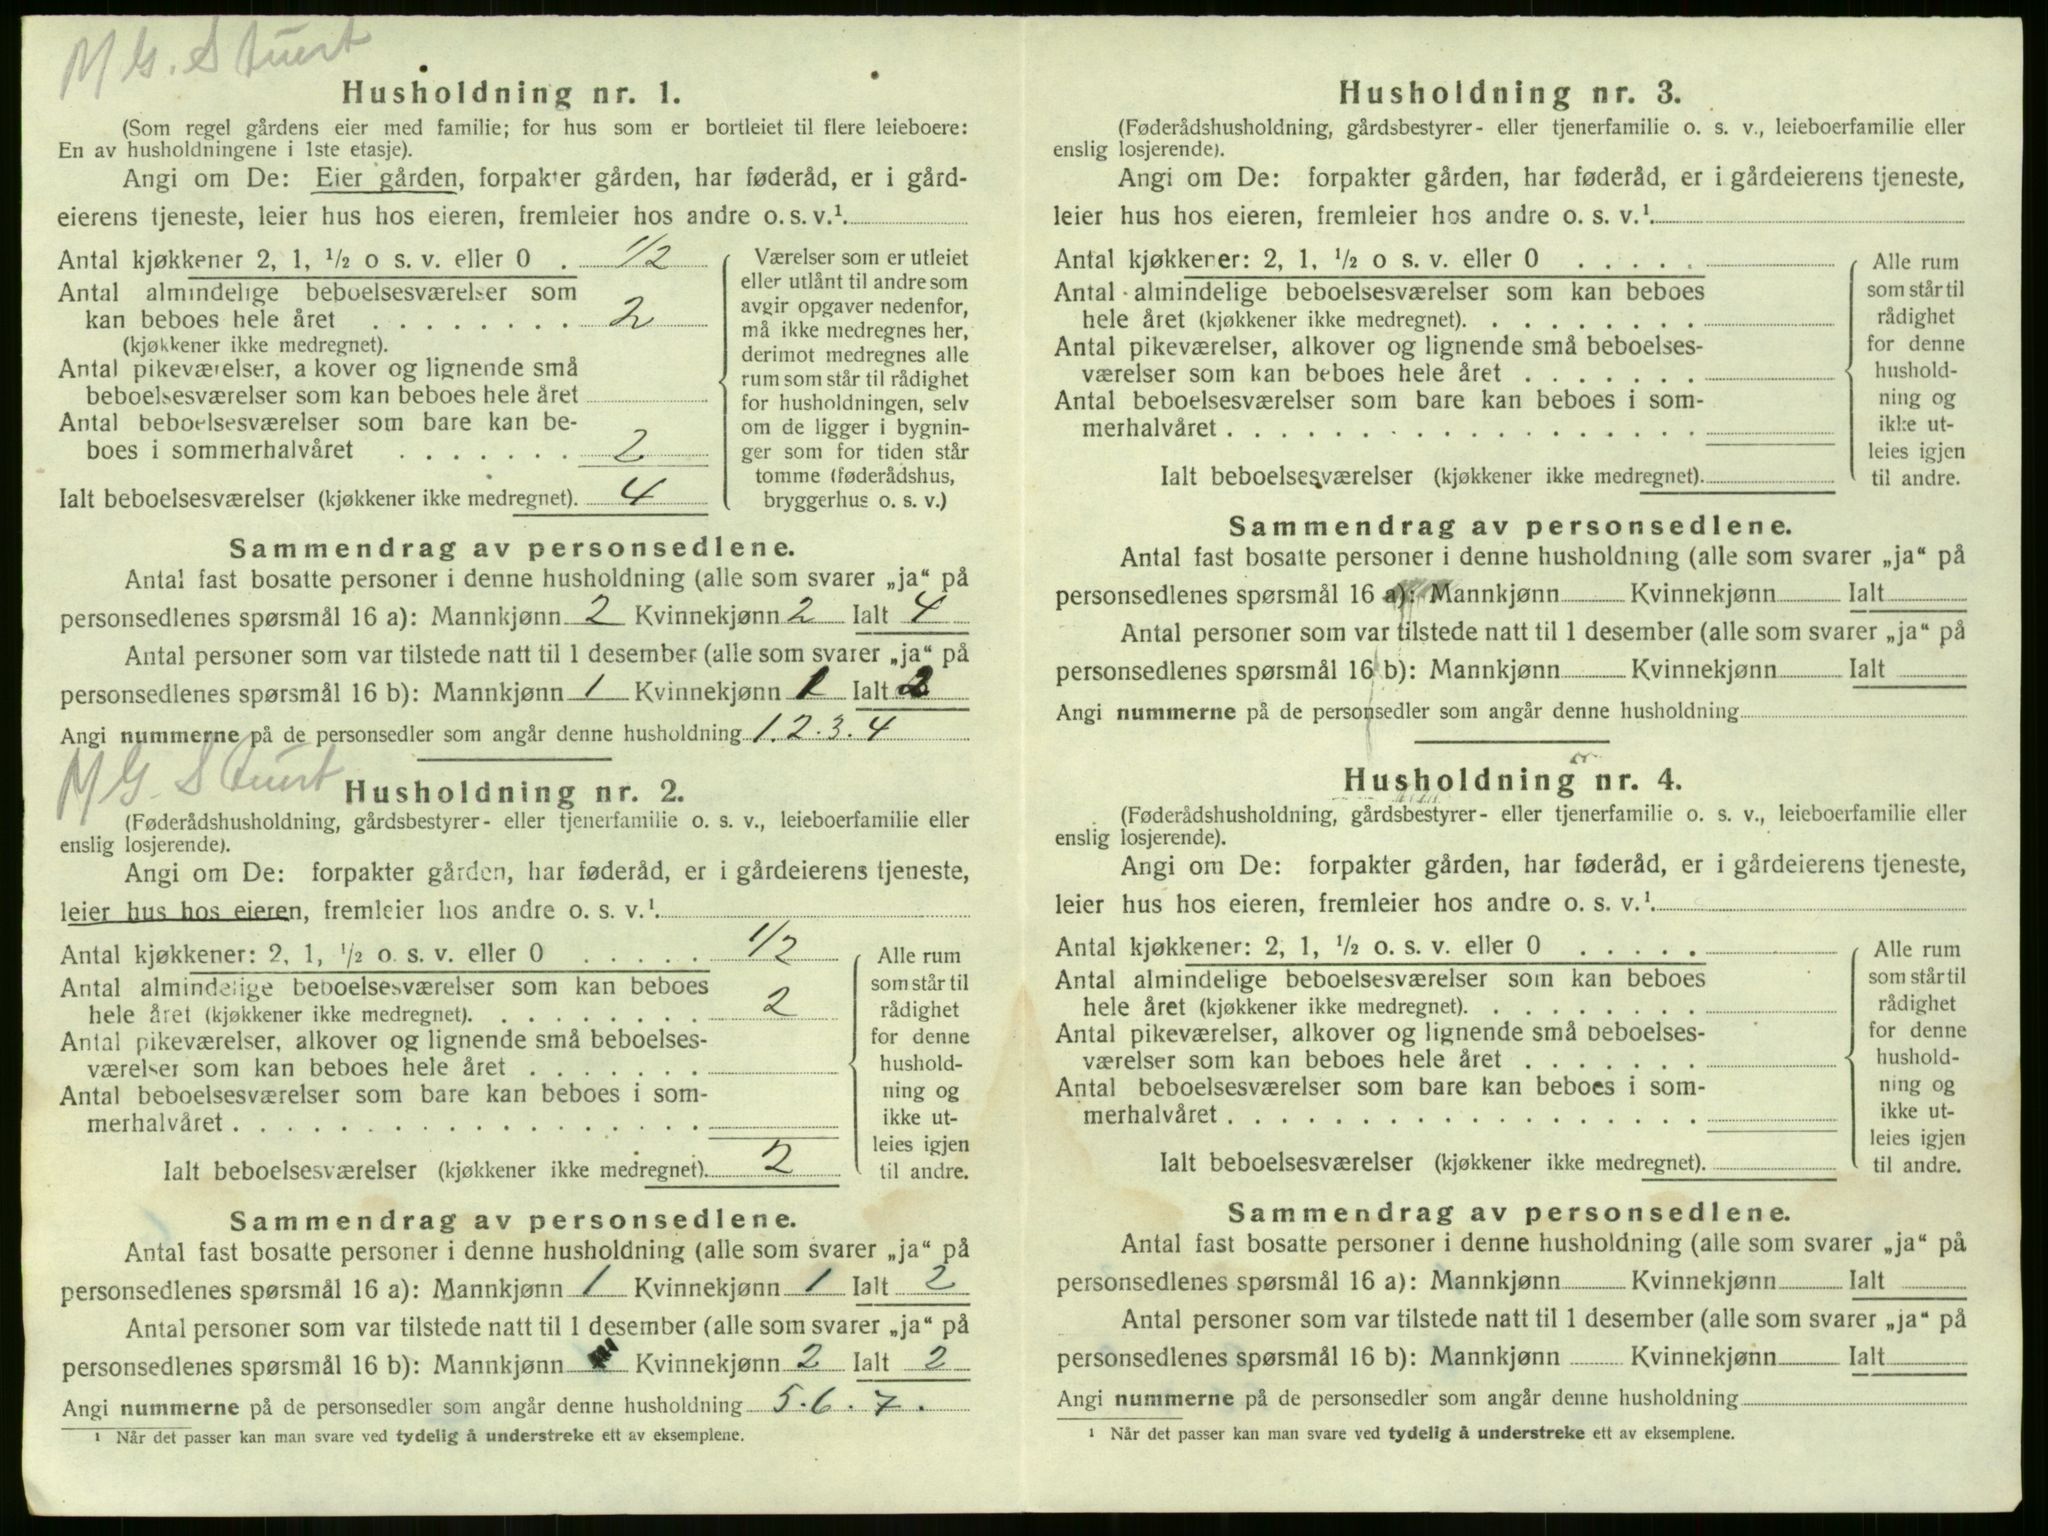 M G. Stuert
Husholdning nr. 1.
(Som regel gårdens eier med familie; for hus som er bortleiet til flere leieboere:
En av husholdningene i 1ste etasje).
Angi om De: Eier gården, forpakter gården, har føderåd, er i gård-
eierens tjeneste, leier hus hos eieren, fremleier hos andre o. s. v.¹.
Antal kjøkkener 2, 1, ½ o s. v. eller 0 . 1/2
Antal almindelige beboelsesværelser som
kan beboes hele året . . . . . . . . 2
(kjøkkener ikke medregnet).
Antal pikeværelser, a kover og lignende små
beboelsesværelser som kan beboes hele året
Antal beboelsesværelser som bare kan be-
boes i sommerhalvåret . . . . . . . 2
Ialt beboelsesværelser (kjøkkener ikke medregnet). 4
Værelser som er utleiet
eller utlånt til andre som
avgir opgaver nedenfor,
må ikke medregnes her,
derimot medregnes alle
rum som står til rådighet
for husholdningen, selv
om de ligger i bygnin-
ger som for tiden står
tomme (føderådshus,
bryggerhus o. s. v.)
Sammendrag av personsedlene.
Antal fast bosatte personer i denne husholdning (alle som svarer „ja“ på
personsedlenes spørsmål 16 a): Mannkjønn 2 Kvinnekjønn 2 Ialt 4
Antal personer som var tilstede natt til 1 desember (alle som svarer „ja“ på
personsedlenes spørsmål 16 b): Mannkjønn 1 Kvinnekjønn 1 Ialt 2
Angi nummerne på de personsedler som angår denne husholdning 1.2.3.4
M G. Stuert
Husholdning nr. 2.
(Føderådshusholdning, gårdsbestyrer- eller tjenerfamilie o. s. v., leieboerfamilie eller
enslig losjerende).
Angi om De: forpakter gården, har føderåd, er i gårdeierens tjeneste,
leier hus hos eieren, fremleier hos andre o. s. v.¹.
Antal kjøkkener: 2, 1, ½ o. s. v. eller 0 . . . . . 1/2
Antal almindelige beboelsesværelser som kan beboes
hele året (kjøkkener ikke medregnet). . . . . . . . . 2
Antal pikeværelser, alkover og lignende små beboelses-
værelser som kan beboes hele året . . . . . . .
Antal beboelsesværelser som bare kan beboes i som-
merhalvåret . . . . . . . . . . . . . . . . . .
Ialt beboelsesværelser (kjøkkener ikke medregnet). 2
Alle rum
som står til
rådighet
for denne
hushold-
ning og
ikke ut-
leies igjen
til andre.
Sammendrag av personsedlene.
Antal fast bosatte personer i denne husholdning (alle som svarer „ja“ på
personsedlenes spørsmål 16 a): Mannkjønn 1 Kvinnekjønn 1 Ialt 2
Antal personer som var tilstede natt til 1 desember (alle som svarer „ja“ på
personsedlenes spørsmål 16 b): Mannkjønn Kvinnekjønn 2 Ialt 2
Angi nummerne på de personsedler som angår denne husholdning 5.6.7.
¹ Når det passer kan man svare ved tydelig å understreke ett av eksemplene.
Husholdning nr. 3.
(Føderådshusholdning, gårdsbestyrer- eller tjenerfamilie o. s. v., leieboerfamilie eller
enslig losjerende).
Angi om De: forpakter gården, har føderåd, er i gårdeierens tjeneste,
leier hus hos eieren, fremleier hos andre o. s. v.¹.
Antal kjøkkener: 2, 1, ½ o s. v. eller 0 . . . . .
Antal almindelige beboelsesværelser som kan beboes
hele året (kjøkkener ikke medregnet). . . . . . . . .
Antal pikeværelser, alkover og lignende små beboelses-
værelser som kan beboes hele året . . . . . . .
Antal beboelsesværelser som bare kan beboes i som-
merhalvåret . . . . . . . . . . . . . . . . . .
Ialt beboelsesværelser (kjøkkener ikke medregnet).
Alle rum
som står til
rådighet
for denne
hushold-
ning og
ikke ut-
leies igjen
til andre.
Sammendrag av personsedlene.
Antal fast bosatte personer i denne husholdning (alle som svarer „ja“ på
personsedlenes spørsmål 16 a): Mannkjønn Kvinnekjønn Ialt
Antal personer som var tilstede natt til 1 desember (alle som svarer „ja“ på
personsedlenes spørsmål 16 b): Mannkjønn Kvinnekjønn Ialt
Angi nummerne på de personsedler som angår denne husholdning
Husholdning nr. 4.
(Føderådshusholdning, gårdsbestyrer- eller tjenerfamilie o. s. v., leieboerfamilie eller
enslig losjerende).
Angi om De: forpakter gården, har føderåd, er i gårdeierens tjeneste,
leier hus hos eieren, fremleier hos andre o. s. v.¹.
Antal kjøkkener: 2, 1, ½ o. s. v. eller 0 . . . . .
Antal almindelige beboelsesværelser som kan beboes
hele året (kjøkkener ikke medregnet). . . . . . . . .
Antal pikeværelser, alkover og lignende små beboelses-
værelser som kan beboes hele året . . . . . . .
Antal beboelsesværelser som bare kan beboes i som-
merhalvåret . . . . . . . . . . . . . . . . . .
Ialt beboelsesværelser (kjøkkener ikke medregnet).
Alle rum
som står til
rådighet
for denne
hushold-
ning og
ikke ut-
leies igjen
til andre.
Sammendrag av personsedlene.
Antal fast bosatte personer i denne husholdning (alle som svarer „ja“ på
personsedlenes spørsmål 16 a): Mannkjønn Kvinnekjønn Ialt
Antal personer som var tilstede natt til 1 desember (alle som svarer „ja“ på
personsedlenes spørsmål 16 b): Mannkjønn Kvinnekjønn Ialt
Angi nummerne på de personsedler som angår denne husholdning
¹ Når det passer kan man svare ved tydelig å understreke ett av eksemplene.